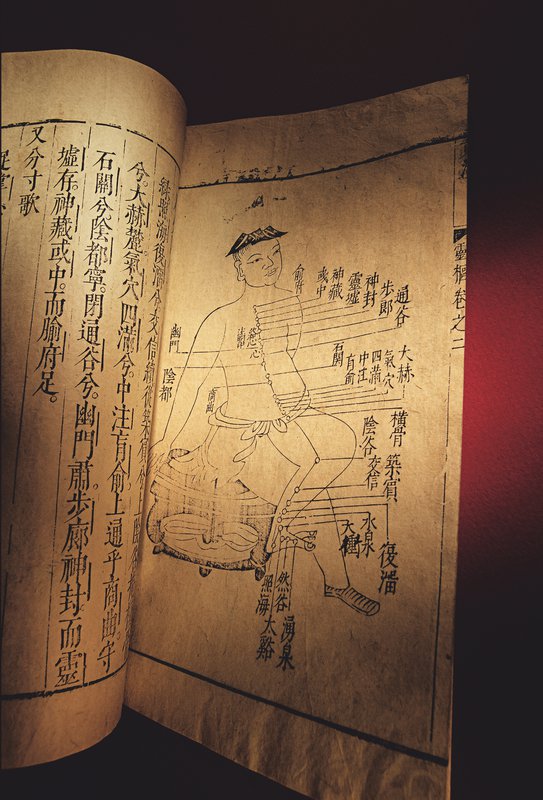 靈樞卷之二
通谷
步郎
神封
靈墟
神藏
或中
俞府
大赫
氣穴
四滿
中注
肓俞
石關
橫骨
築賓
陰谷
交信
復溜
水泉
湧泉
然谷
太谿
照海
幽門
陰都
兮。大赫麓。氣穴四滿兮。中注肓俞上通乎商曲。守
石關兮。陰都寧。閉通谷兮。幽門肅。步廊神封而靈
墟存。神藏或中。而腧府足。
又分寸歌